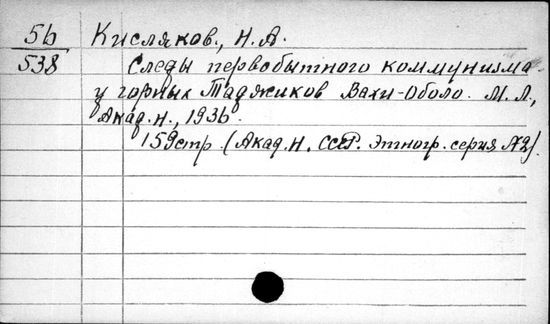 56 Кисляков, Н.А.
538 Следы первобытного коммунизма
у горных Таджиков Вахи-Оболо. М.Л.,
Акад.Н., 1936.
159 стр. (Акад.Н. СССР. Этногр. серия №2).